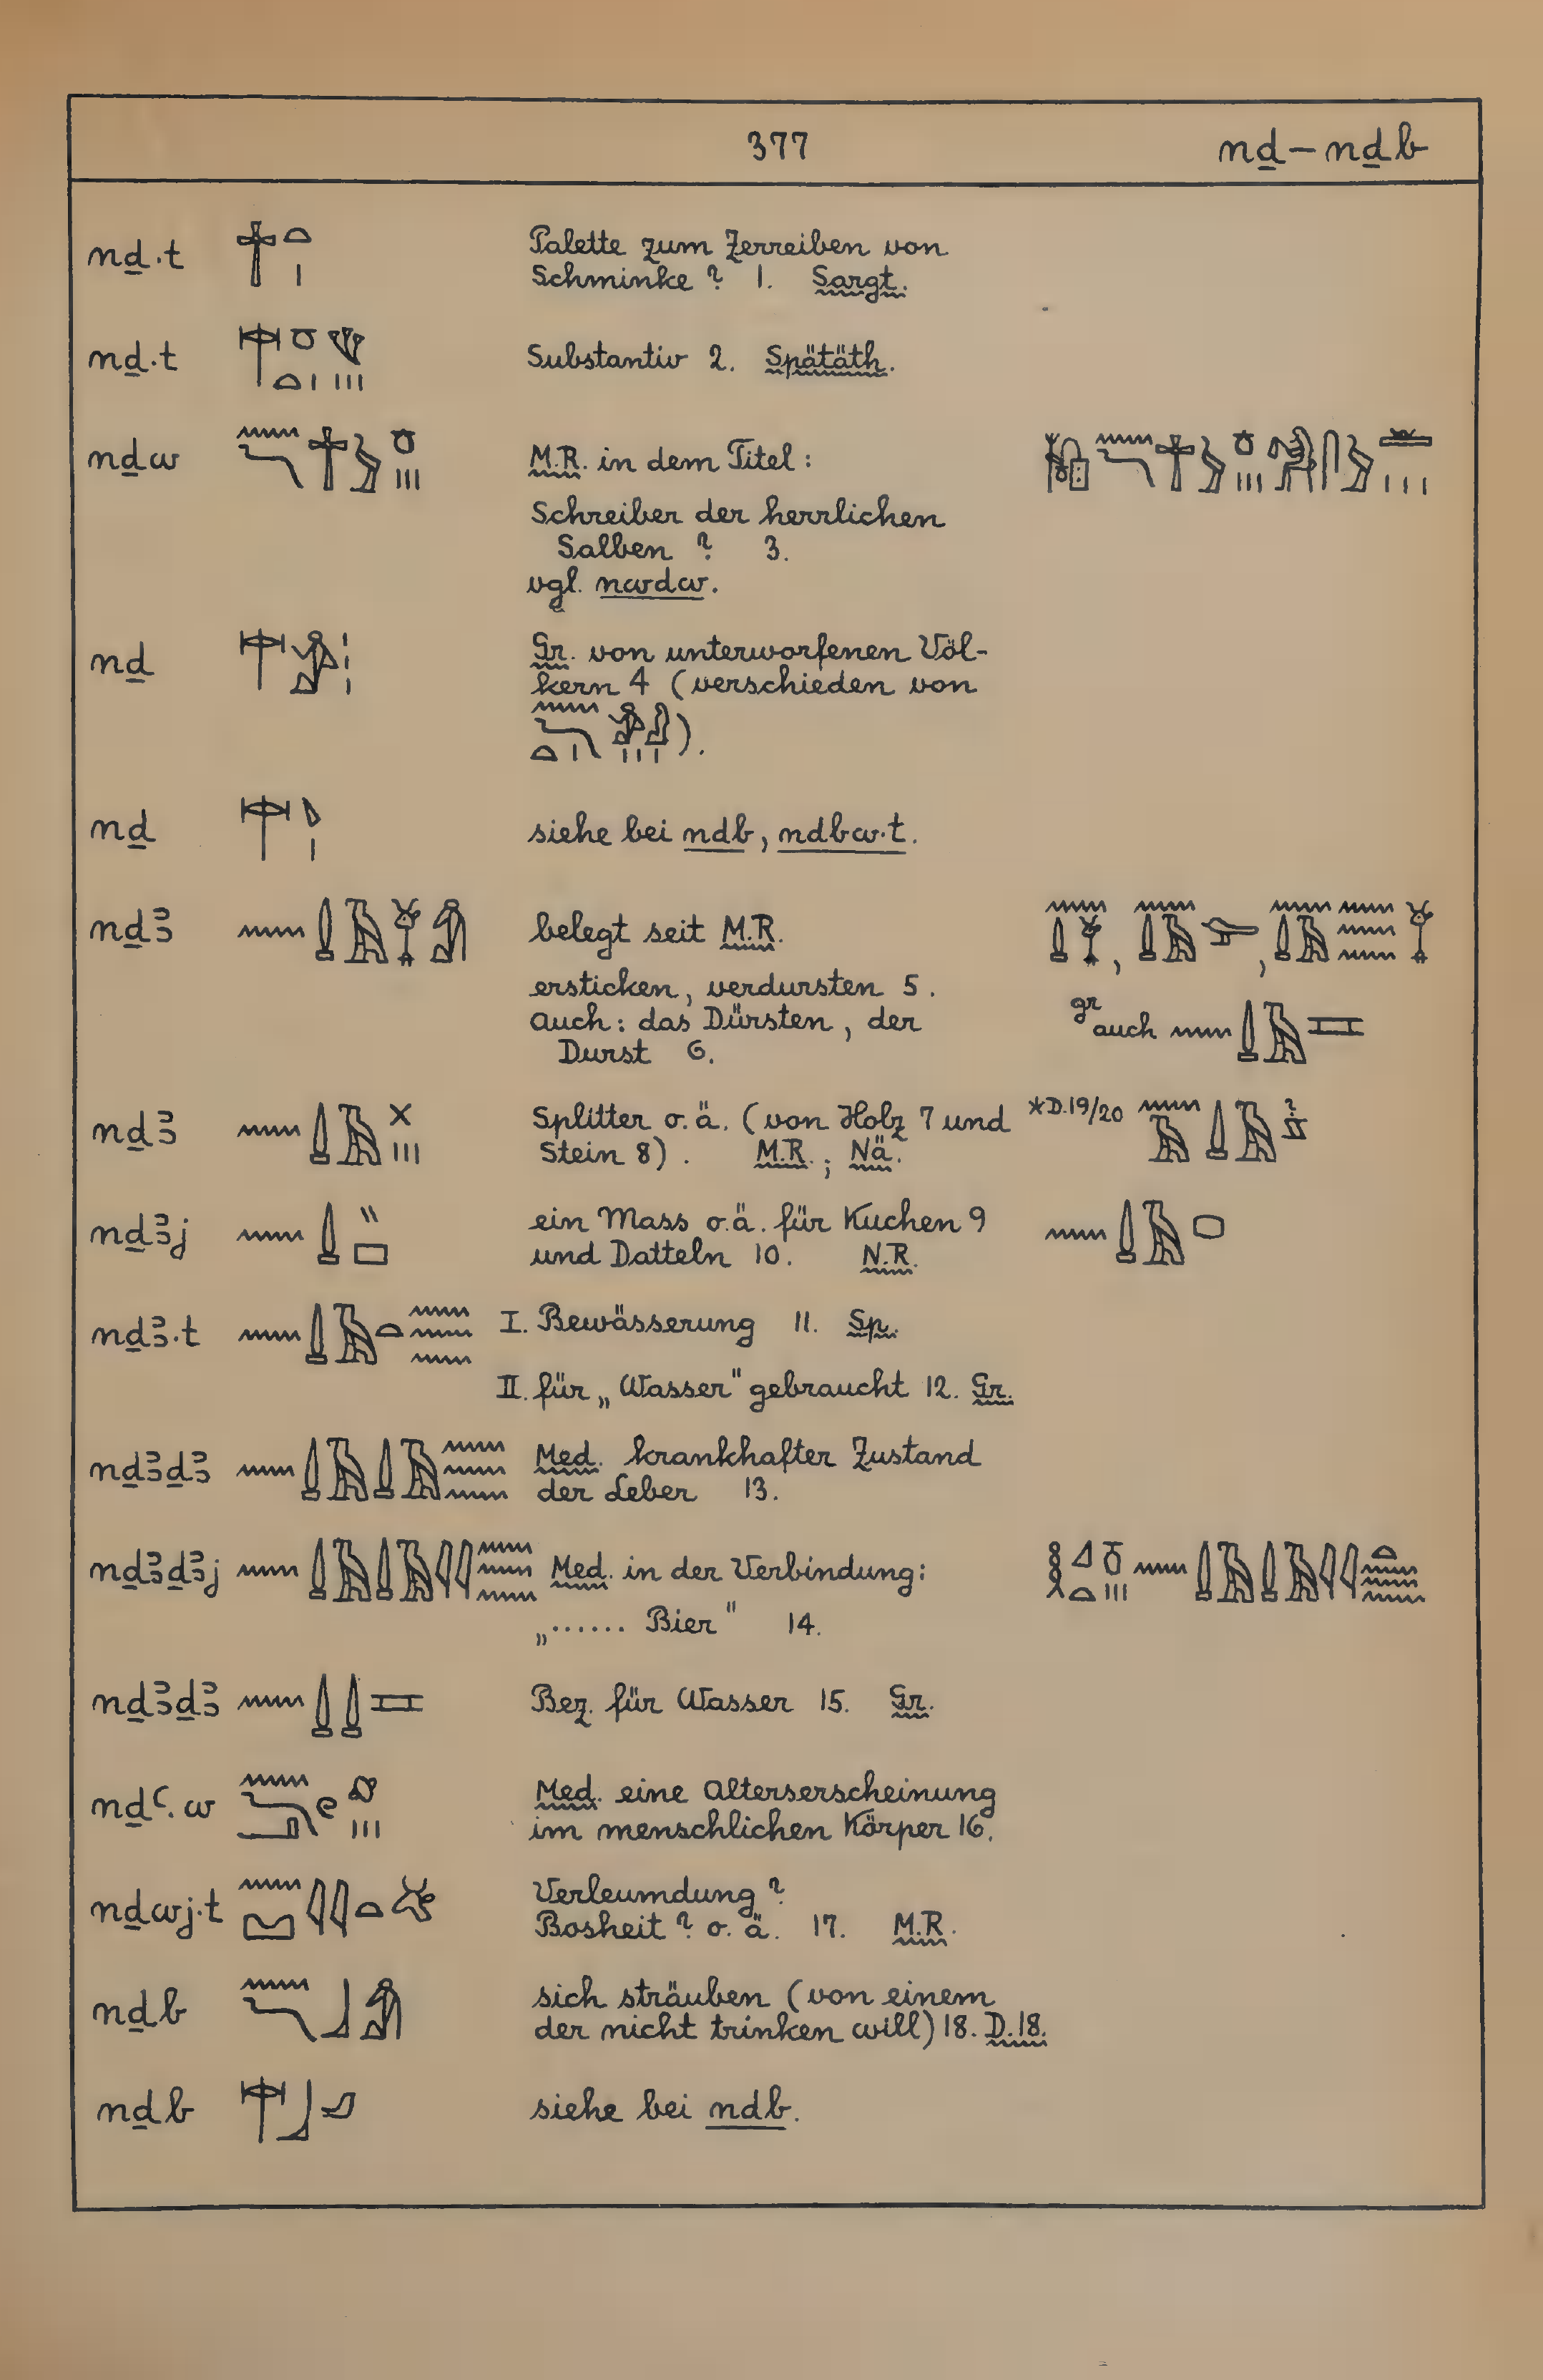 377 nḏ – nḏb
nḏ.t Palette zum Zerreiben von
Schminke ? 1. Sargt.
nḏ.t Substantiv 2. Spätäth.
nḏw M.R. in dem Titel:
Schreiber der herrlichen
Salben ? 3.
vgl. nwdw.
nḏ Gr. von unterworfenen Völ-
kern 4 (verschieden von
).
nḏ siehe bei ndb, ndbw.t.
nḏꜣ belegt seit M.R. , ,
ersticken, verdursten 5.
auch: das Dürsten, der gr auch
Durst 6.
nḏꜣ Splitter o.ä. (von Holz 7 und *D.19/20 ?
Stein 8). M.R.; Nä.
nḏꜣj ein Mass o.ä. für Kuchen 9
und Datteln 10. N.R.
nḏꜣ.t I. Bewässerung 11. Sp.
II. für „Wasser" gebraucht 12. Gr.
nḏꜣḏꜣ Med. krankhafter Zustand
der Leber 13.
nḏꜣḏꜣj Med. in der Verbindung:
„...... Bier" 14.
nḏꜣḏꜣ Bez. für Wasser 15. Gr.
nḏꜥ.w Med. eine Alterserscheinung
im menschlichen Körper 16.
nḏwj.t Verleumdung ?
Bosheit ? o.ä. 17. M.R.
nḏb sich sträuben (von einem
der nicht trinken will) 18. D.18.
nḏb siehe bei ndb.